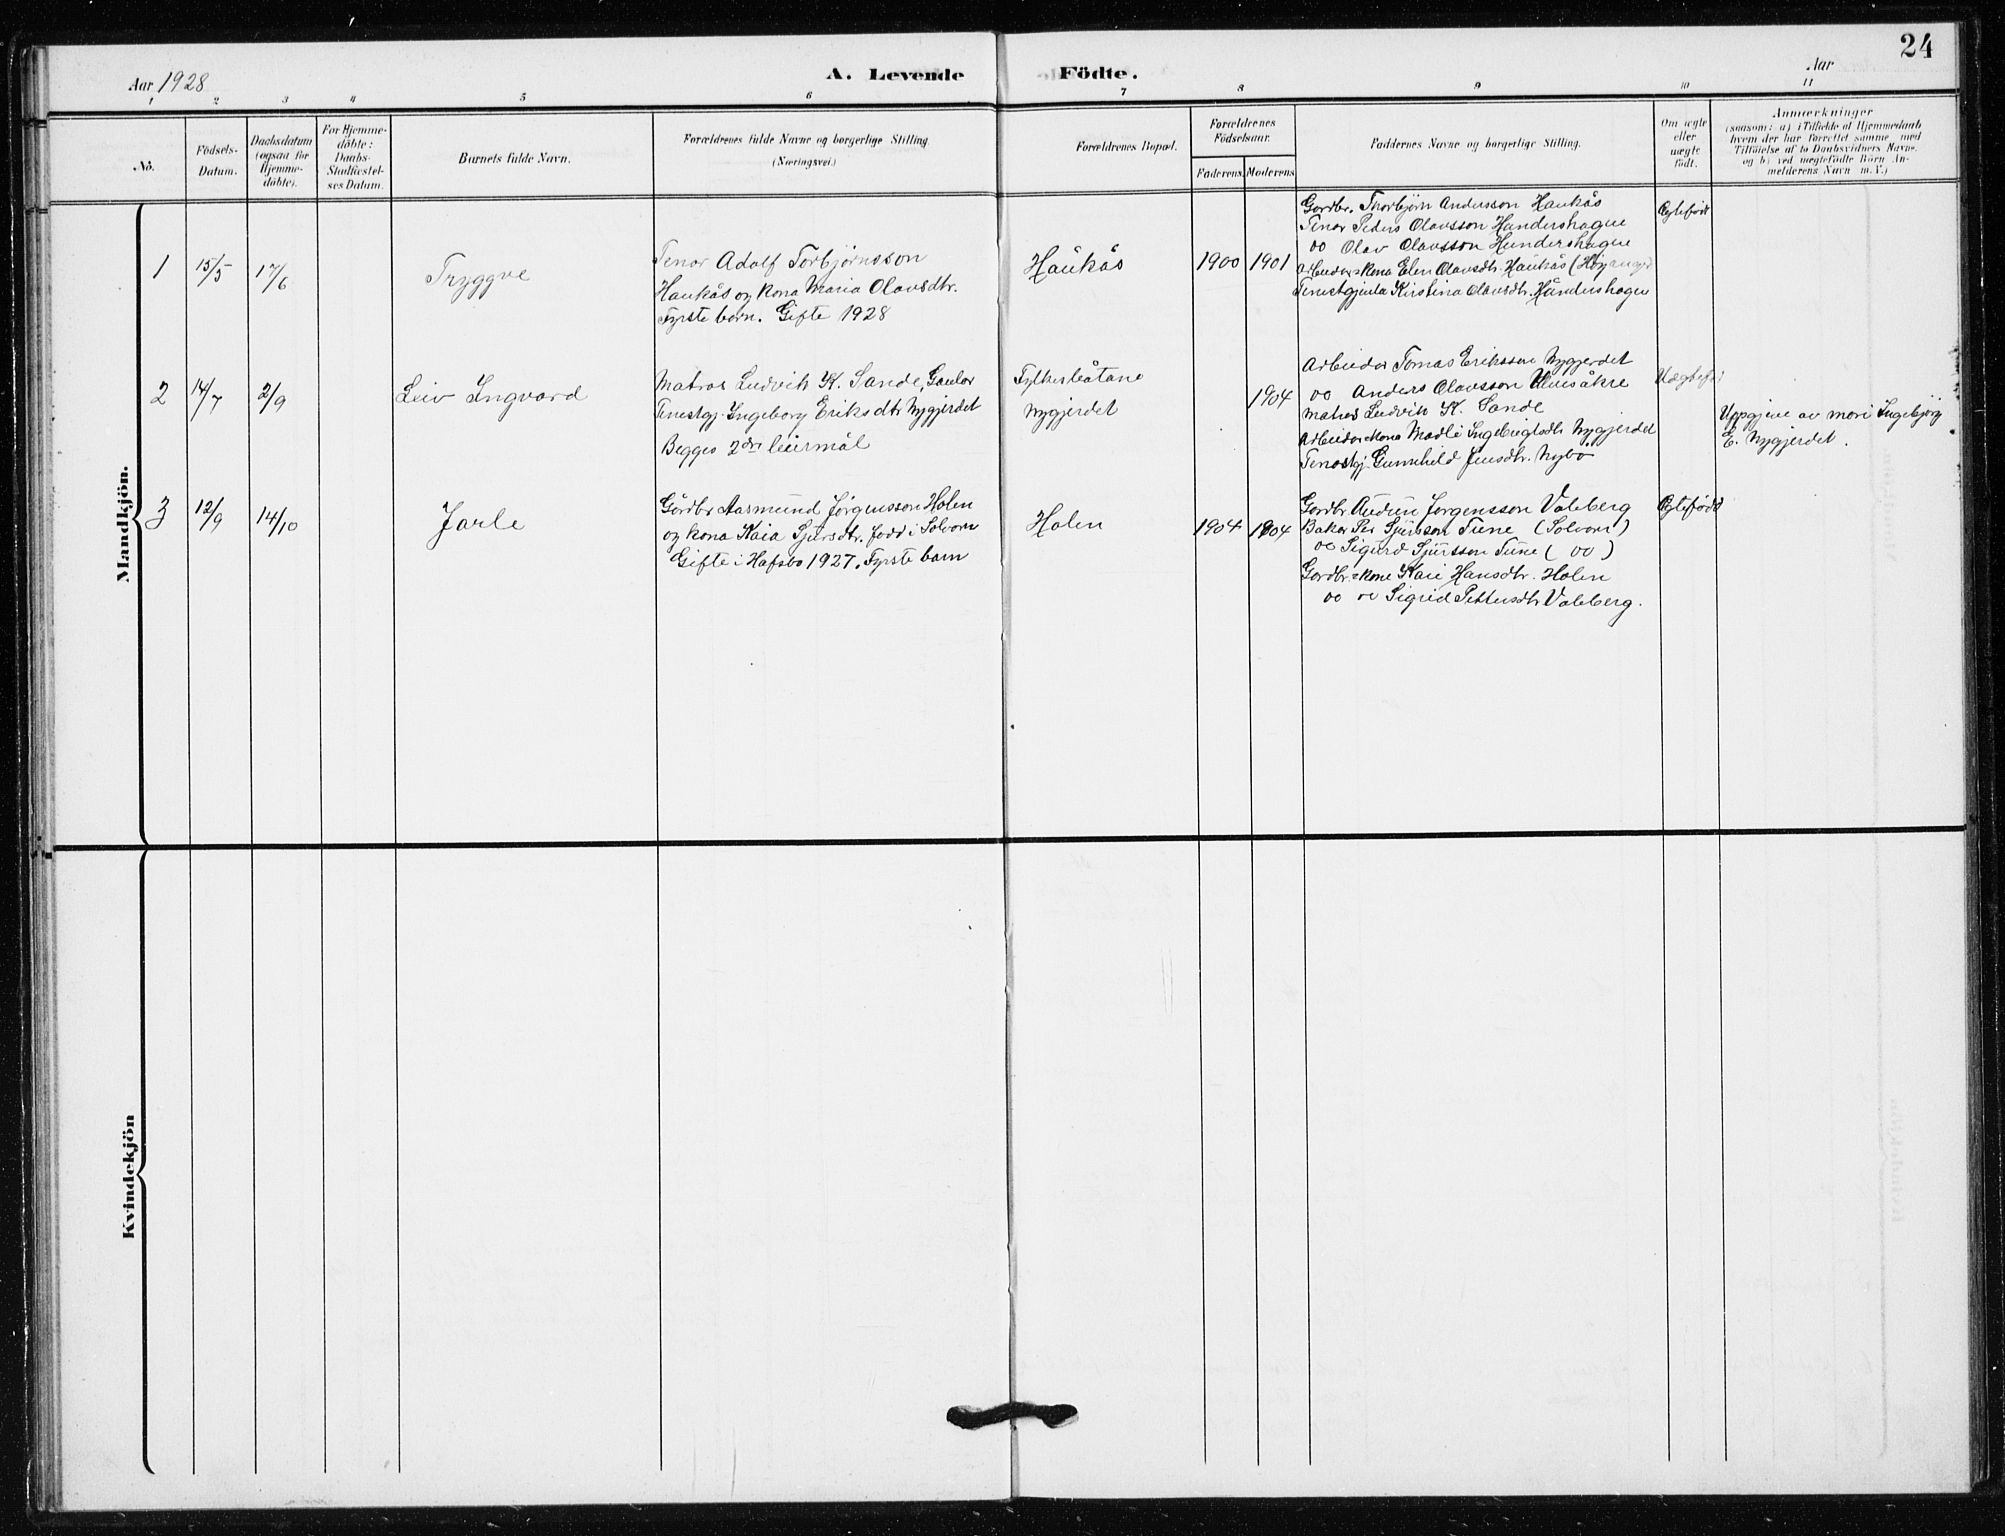 24
Aar 1928
A. Levende Födte.
Aar
1 2 3 4 5 6 7 8 9 10 11
No.
Födsels-Datum.
Daabsdatum (ogsaa for Hjemme-döbte).
For Hjemme-döbte: Daabs-Stadfæstel-ses Datum.
Barnets fulde Navn.
Forældrenes fulde Navne og borgerlige Stilling (Næringsvei.)
Forældrenes Bopæl.
Forældrenes Födselsaar.
Faderens. Moderens.
Faddernes Navne og borgerlige Stilling.
Om ægte eller uægte födt.
Anmærkninger
(saasom: a) i Tilfælde af Hjemmedaab
hvem der har forrettet samme med
Tilföielse af to Daabsvidners Navne.
og b) ved uægtefödte Börn An-
melderens Navn m. V.)
Mandkjön.
1 15/5 17/6 Tryggve
Tenar Adolf Torbjørnsson
Haukås og kona Maria Olavsdtr.
Fyrste barn. Gifte 1928
Haukås
1900 1901
Gardbr. Thorbjørn Andersson Haukås
Tenar Peders Olavsson Hundershague
oo Olav Olavsson Hundershague
Arbeidarskona Elen Olavsdtr. Haukås (Høyanger)
Tenestgjenta Kirstina Olavsdtr. Hundershagen
Egtefødt
2 14/7 2/9 Leiv Ingvard
Matros Ludvik K. Sande, Gaular
Tenestgj. Ingeborg Eriksdtr Nygjerdet
Begges 2dre leiermål
Fylkesbåtane
Nygjerdet
1904
Arbeidar Tomas Eriksson Nygjerdet
oo Anders Olavsson
Matros Ludvik K. Sande
Arbeidarkona Madli Ingebrigtsdtr Nygjerdet
Tenestgj. Gunnhild Jensdtr. Nybø
Uppgjeve av mori Ingebjørg
E. Nygjerdet.
3 12/9 14/10 Jarle
Gårdbr Aasmund Jørgensson Holen
og kona Kaia Sjursdtr. fødd i Solvorn
Gifte i Hafslo 1927. Fyrste barn
Holen
1904 1904
Gardbr Audun Jørgensson Valeberg
Bakar Per Sjursson Tune (Solvorn)
oo Sigurd Sjursson Tune ( oo )
Gardbr.-kone Kari Hansdtr. Holen
oo oo Sigrid Pettersdtr Valeberg.
Egtefødt
Kvindekjön